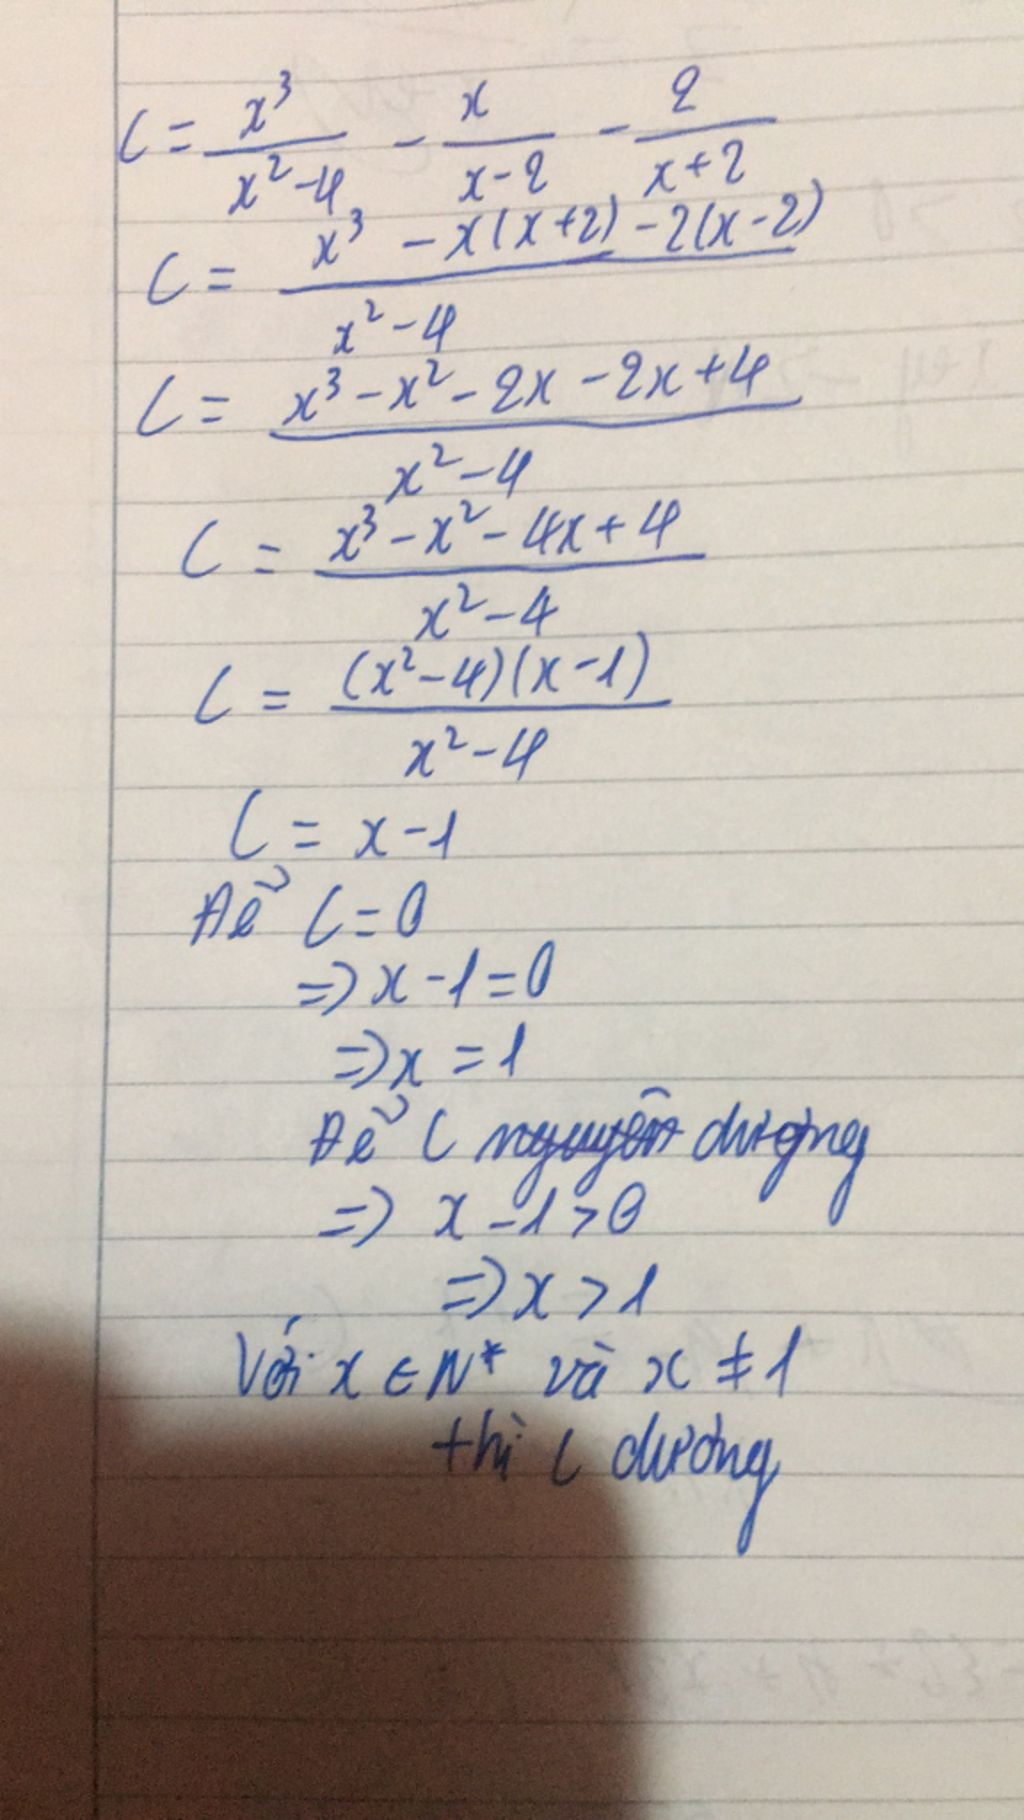 C = x³/(x²-4) - x/(x-2) - 2/(x+2)
C = (x³ - x(x+2) - 2(x-2))/(x²-4)
C = (x³ - x² - 2x - 2x + 4)/(x²-4)
C = (x³ - x² - 4x + 4)/(x²-4)
C = ((x²-4)(x-1))/(x²-4)
C = x-1
Để C = 0
=> x-1 = 0
=> x = 1
Để C nguyên dương
=> x-1 > 0
=> x > 1
Với x ∈ N* và x ≠ 1
thì C dương